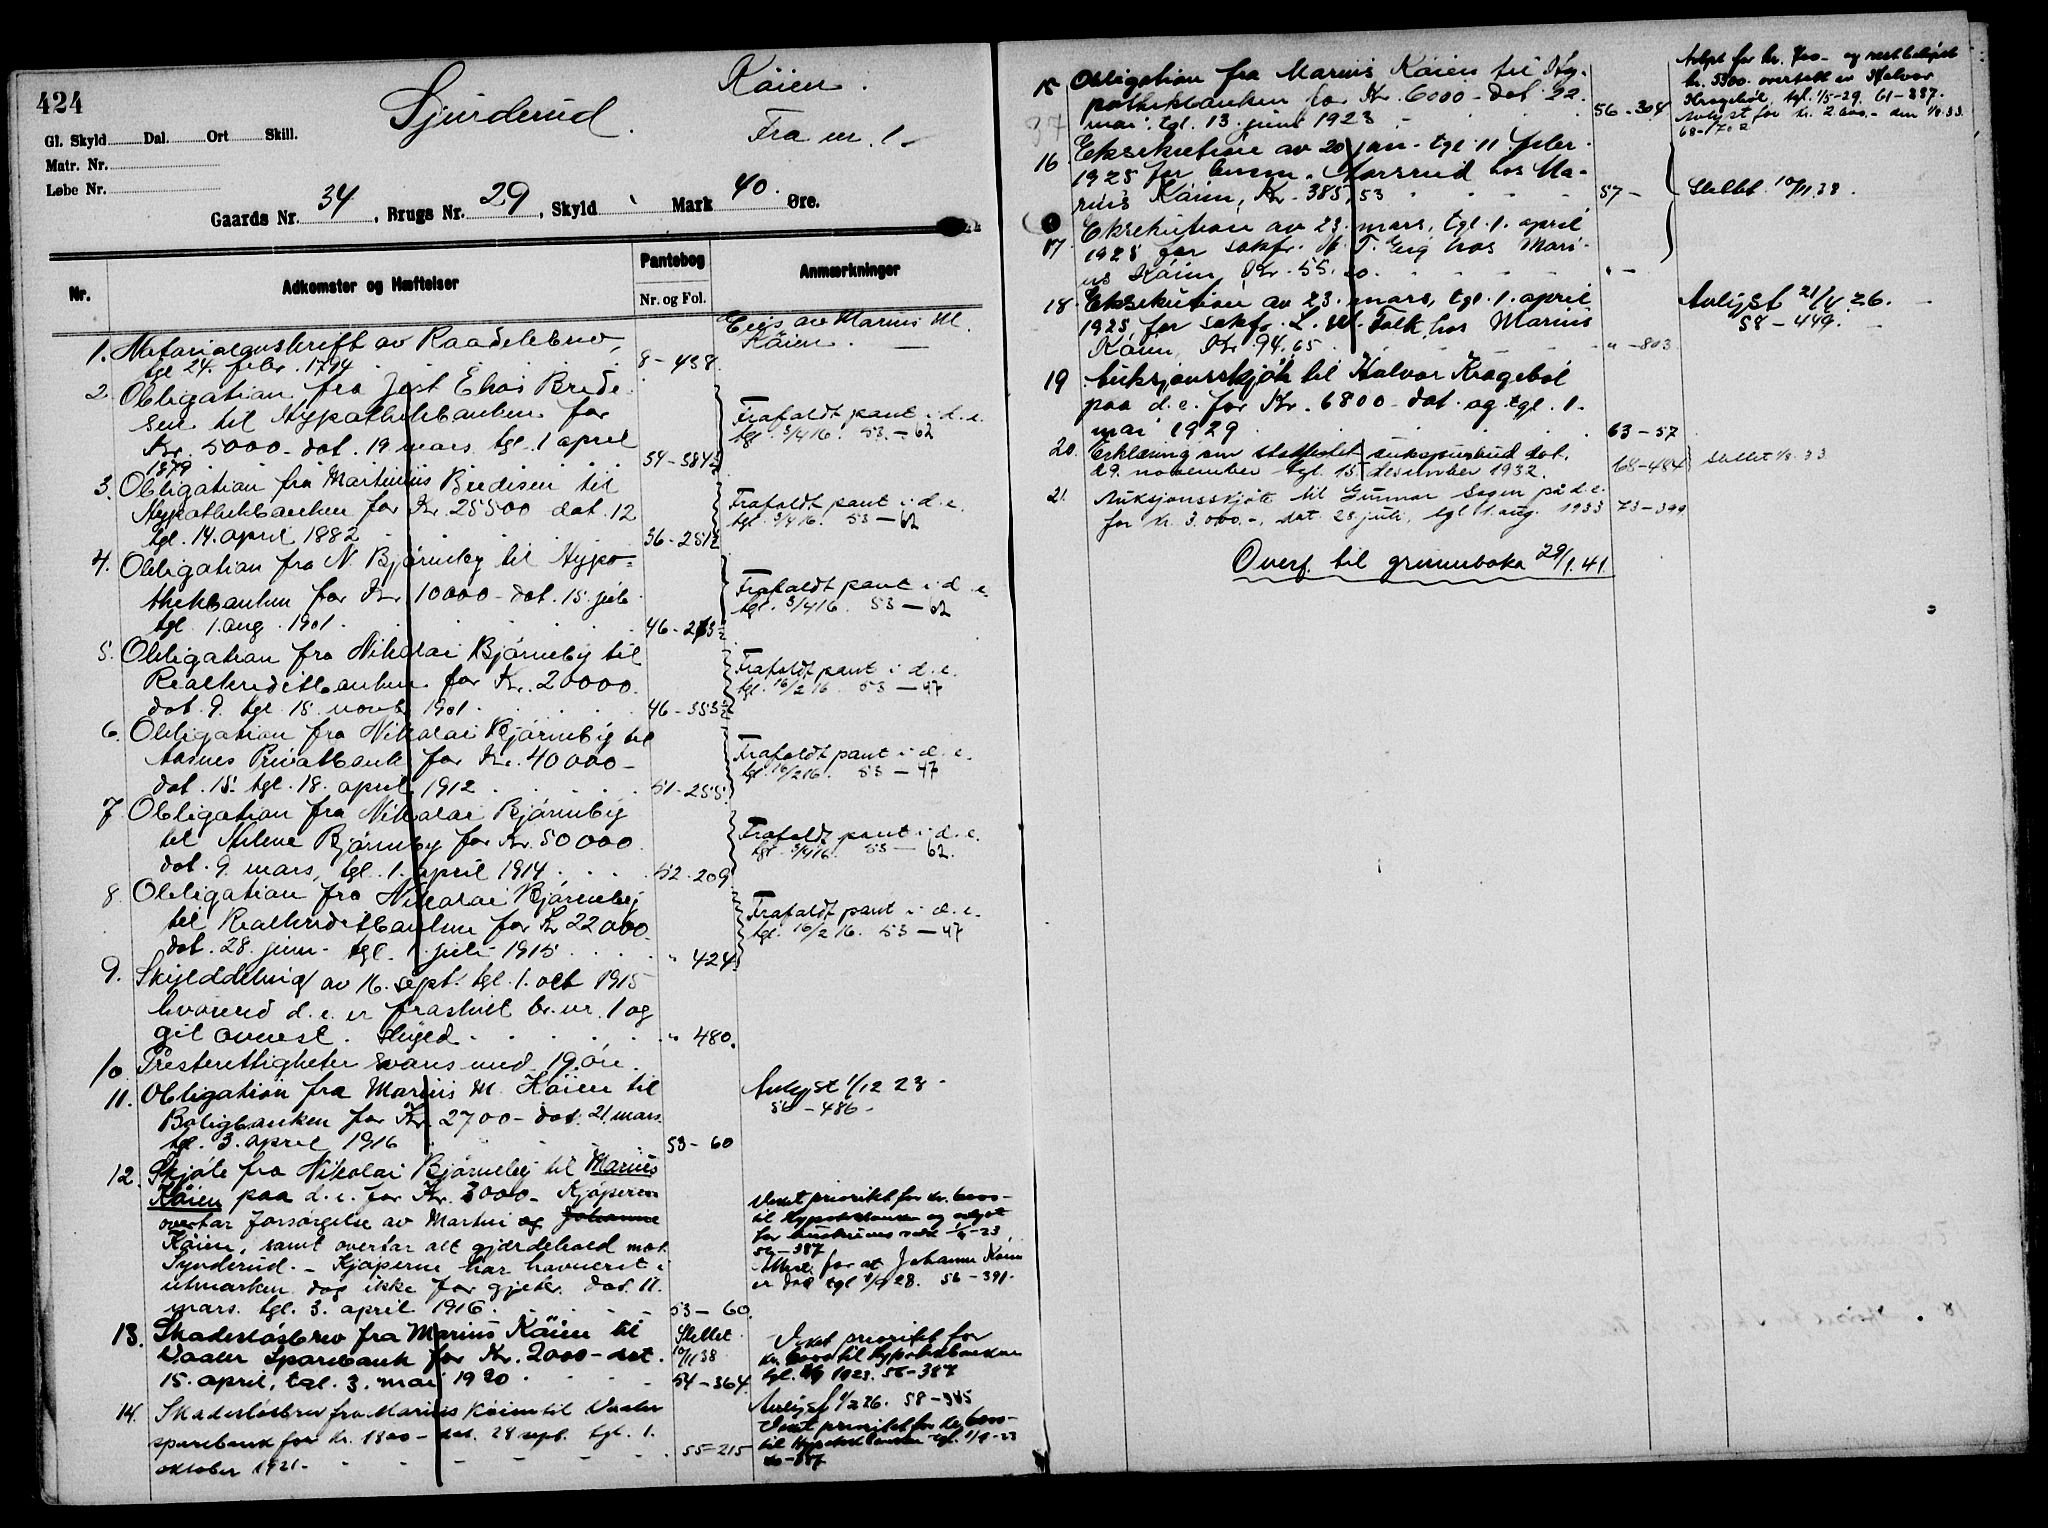 424
Sjurderud.
Köien.
Fra nr. 1.
Gl. Skyld Dal. Ort Skill.
Matr. Nr.
Løbe Nr.
Gaards Nr. 34, Brugs Nr. 29, Skyld Mark 40. Øre.
Nr.
Adkomster og Hæftelser
Pantebog
Nr. og Fol.
Anmærkninger
Eies av Marius M.
Köien.
1. Notarialavskrift av Raadelsbrev,
tgl 24. febr. 1794 8-438
2. Obligation fra Jost Elias Brede-
sen til Hypothekbanken for
Kr. 5000- dat. 19 mars tgl. 1 april
1879 34-384
Frafaldt pant i d. e.
tgl. 3/4 16. 53-62
3. Obligation fra Martinius Bredesen til
Hypothekbanken for Kr. 25500 dat. 12
tgl. 14. april 1882 36-281
Frafaldt pant i d. e.
tgl. 3/4 16. 53-62
4. Obligation fra N. Bjørneby til Hypo-
thekbanken for Kr 10000- dat. 15. juli
tgl. 1. aug. 1901. 46-263
Frafaldt pant i d. e.
tgl. 3/4 16. 53-62
5. Obligation fra Nikolai Bjørneby til
Realkreditbanken for Kr. 20000.
dat. 9. tgl. 15. novb. 1901. 46-353
Frafaldt pant i d. e.
tgl. 16/2 16. 53-47
6. Obligation fra Nikolai Bjørneby til
Aasnes Privatbank for Kr. 40000-
dat. 15. tgl. 18. april 1912 51-255.
Frafaldt pant i d. e.
tgl. 16/2 16. 53-47
7. Obligation fra Nikolai Bjørneby
til Milene Bjørneby for Kr. 50000.
dat. 9. mars, tgl. 1. april 1914 52-209
Frafaldt pant i d. e.
tgl. 3/4 16. 53-62.
8. Obligation fra Nikolai Bjørneby
til Realkreditbanken for Kr 22000-
dat. 28. juni- tgl. 1. juli 1915 " 424
Frafaldt pant i d. e.
tgl. 16/2 16. 53-47
9. Skylddeling av 16. sept. tgl. 1. okt 1915
hvorved d. e. er fraskilt br. nr. 1 og
git ovenst. Skyld. " 480.
10. Presterettigheter svares med 19 öre.
11. Obligation fra Marius M. Köien til
Boligbanken for Kr. 2700- dat. 21. mars.
tgl. 3. april 1916 53-60
Avlyst 1/12 23.
56-486-
12. Skjöte fra Nikolai Bjørneby til Marius
Köien paa d. e. for Kr. 3000- Kjöperen
overtar forsörgelse av Martin og Johanne
Köien, samt overtar alt gjærdehold mot
Synderud.- Kjöperne har havneret i
utmarken dog ikke for gjeter. Dat. 11.
mars. tgl. 3. april 1916. 53-60.
Veket prioritet for kr. 6000-
til Hypotekbanken og avlyst
56-387
for at Johanne Köien
er død tgl 28. 56-391.
13. Skadeslösbrev fra Marius Köien til
Vaaler Sparebank for Kr. 2000- dat.
15. april, tgl. 3. mai 1920 54-364.
Slettet
10/11 38
Veket prioritet for
kr. 6000 til Hypotekbanken
tgl. 1/9 1923. 56-387
14. Skadeslösbrev fra Marius Köien til Vaaler
sparebank for kr. 1800- dat. 28 sept. tgl. 1.
oktober 1921- 55-215
Avlyst 1/2 26. 58-385
Veket prioritet for kr. 6000-
til Hypotekbanken tgl. 1/9-23
56-387
15 Obligation fra Marius Köien til Hy-
pothekbanken for Kr. 6000- dat. 22.
mai. tgl. 13. juni 1923. 56-304
Avlyst for kr. 700- og restbeløpet
kr. 5300- overtatt av Halvor
Kragebøl, tgl. 1/5-29. 61-887.
Avlyst for kr. 2.600.- den 1/8.33.
68-1702
16. Eksekution av 20 jan- tgl. 11 febr.
1925 for Korsrud hos Ma-
rius Köien, Kr. 385,53 57-
Slettet 10/11.38.
17. Eksekution av 23. mars, tgl. 1. april
1925 for sakf. M. T. Eng hos Mari-
us Köien Kr. 55.20. " -
18. Eksekution av 23. mars, tgl. 1. april
1925 for sakf. L. M. Falk hos Marius
Köien, Kr. 94,65 " -803
Avlyst 21/4 26.
58-449.
19. Auksjonsskjöte til Halvor Kragebøl
paa d. e. for Kr. 6800- dat. og tgl. 1.
mai 1929 63-57
20. Erklæring om stadfestet auksjonsbud dat.
29. november tgl. 15. desember 1932. 68-484
slettet 1/8.33
21. Auksjonsskjöte til Gunnar Sagen på d. e.
for kr. 3.000.-, dat. 28. juli, tgl 1. aug. 1933 73-399
Overf. til grunnboka 29/1.41.